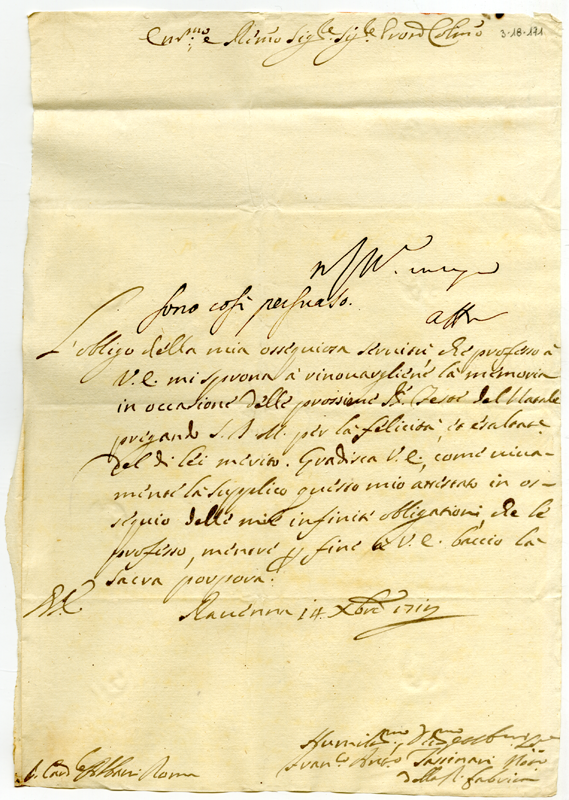 Em.mo e R.mo Sig.re Sig.re Pron Col.mo
3-18-171
sono così persuaso.
L'obligo della mia ossequiosa servitù che professo à
V.E. mi sprona à rinovargliene la memoria
in occasione delle prossime S.te Feste del Natale
pregando S.D.M. per la felicità, et esaltaz.e
del di lei merito. Gradisca V.E., come viva-
mente la supplico questo mio attestato in os-
sequio delle mie infinite obligationi, che le
professo, mentre per fine à V.E. baccio la
sacra porpora.
Ravenna 14 Xbre
Humil.mo
Fran.co
della R. Fabrica
S. Card.le Albani Roma